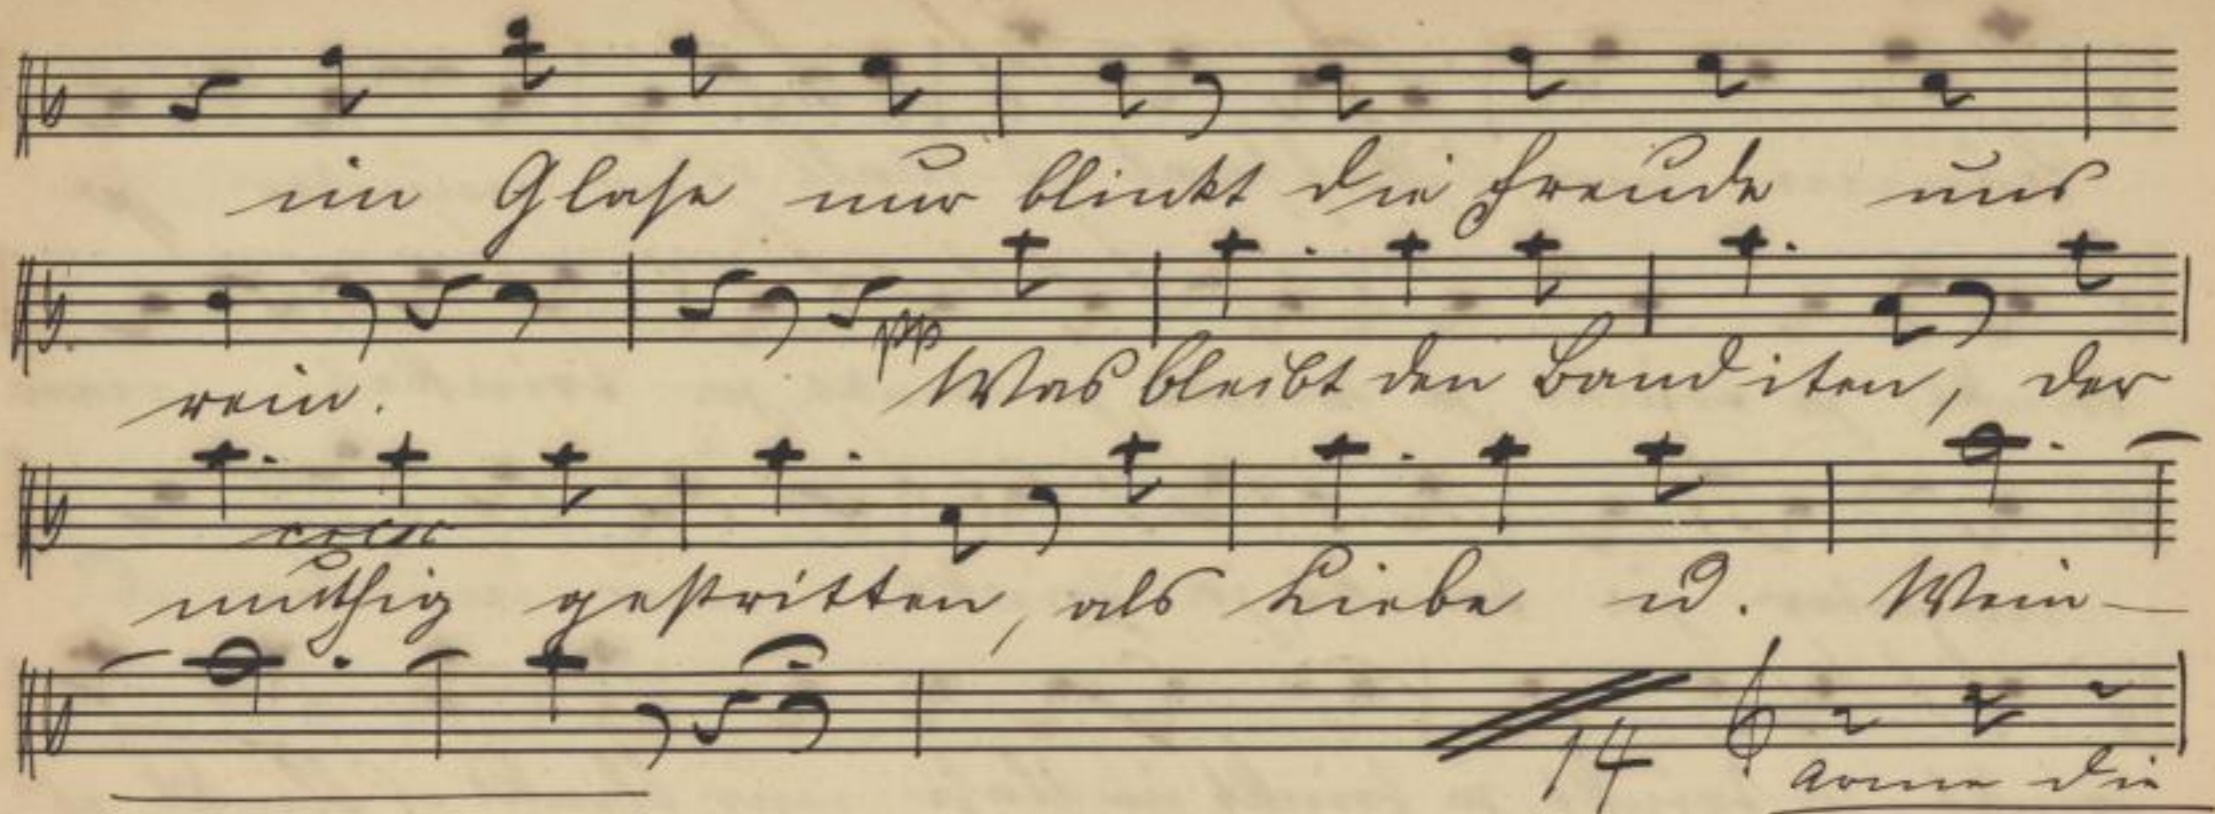 im Glase nur blinkt die Freude uns
rein. ppp Was bleibt den Banditen, der
cresc
muthig gestritten, als Liebe u. Wein
14
Arme die